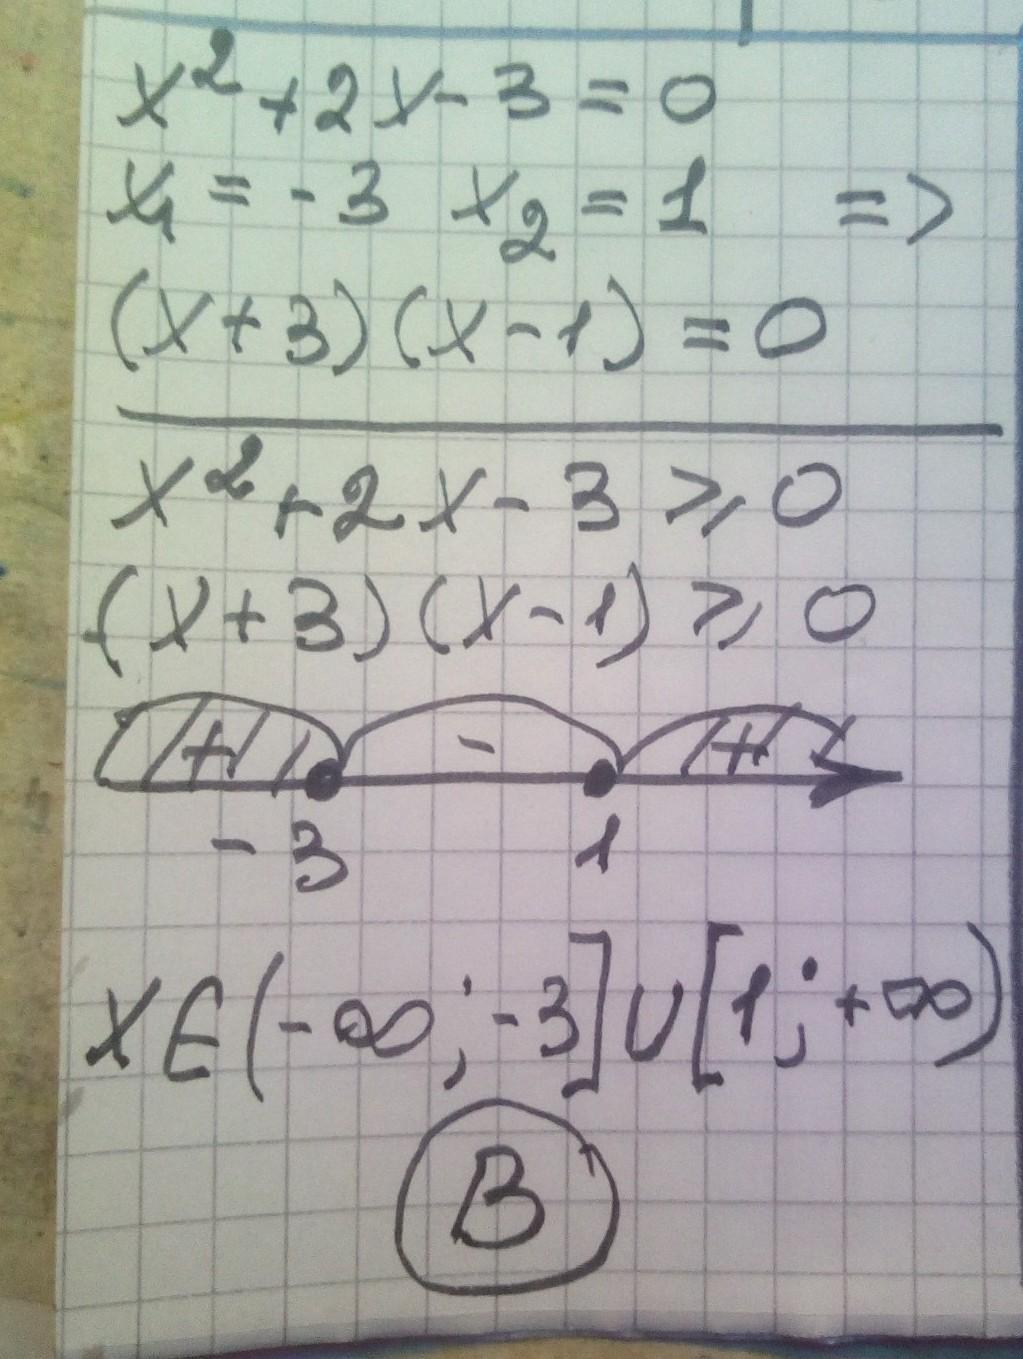 x² + 2x - 3 = 0
x₁ = -3 x₂ = 1 =>
(x + 3) (x - 1) = 0
x² + 2x - 3 ⩾ 0
(x + 3) (x - 1) ⩾ 0
+ - +
-3 1
x ∈ (-∞; -3] ∪ [1; +∞)
В